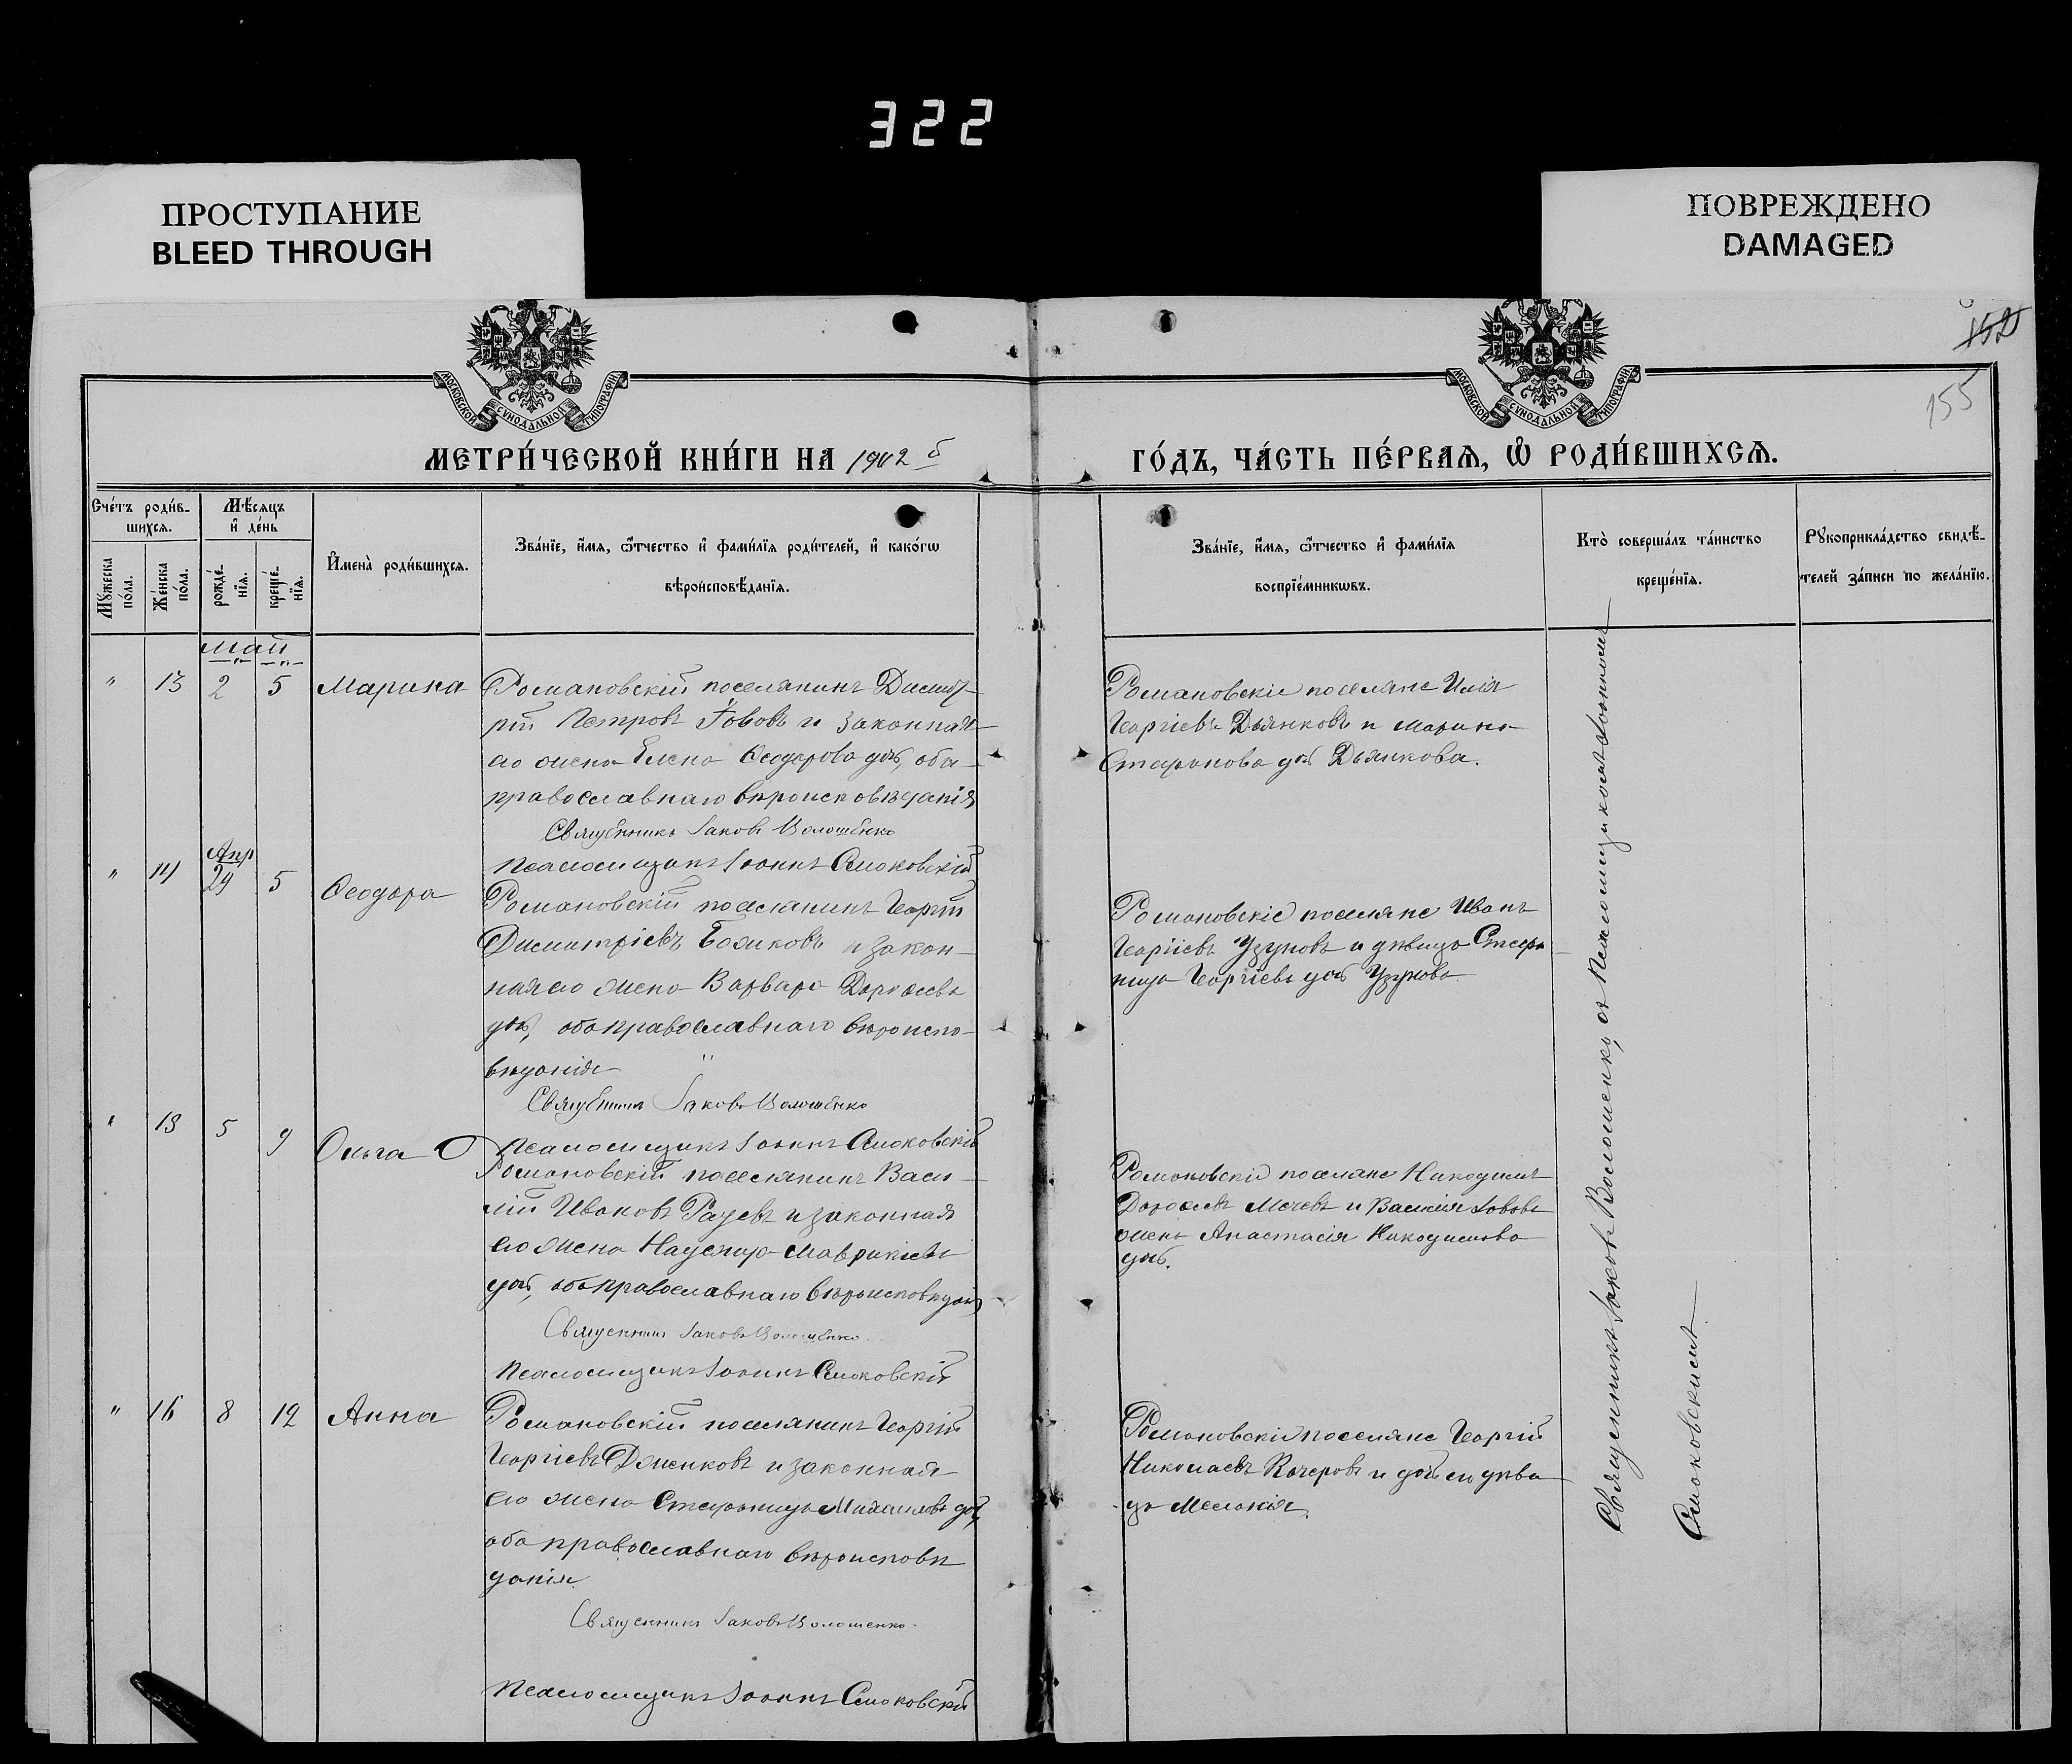 322
ПРОСТУПАНИЕ
BLEED THROUGH
ПОВРЕЖДЕНО
DAMAGED
152
155
МОСКОВСКОЙ СѴНОДАЛЬНОЙ ТИПОГРАФІИ
МОСКОВСКОЙ СѴНОДАЛЬНОЙ ТИПОГРАФІИ
МЕТРИ́ЧЕСКОЙ КНИ́ГИ НА 1902 й
ГО́ДЪ, ЧА́СТЬ ПЕ́РВАѦ, Ѡ҆ РОДИ́ВШИХСѦ.
Сче́тъ роди́в-
шихсѧ.
Мꙋ́жеска по́ла.
Же́нска по́ла.
Мѣ́сяцъ
и҆ де́нь
рожде́-
нїѧ.
креще́-
нїѧ.
И҆мена̀ роди́вшихсѧ.
Зва́нїе, и҆́мѧ, ѻ҆́тчество и҆ фами́лїѧ роди́телей, и҆ како́гѡ
вѣроисповѣ́данїѧ.
Зва́нїе, и҆́мѧ, ѻ҆́тчество и҆ фами́лїѧ
воспрїе́мникѡвъ.
Кто̀ соверша́лъ та́инство
креще́нїѧ.
Рꙋкоприкла́дство свидѣ́-
телей за́писи по жела́нїю.
Май
" 13 2 5 Марина
Романовскій поселянинъ Димит-
рій Петровъ Іововъ и законная
его жена Елена Ѳеодорова дочь, оба
православнаго вѣроисповѣданія
Священникъ Іаковъ Волошенко
Псаломщикъ Іоаннъ Смоковскій
Романовскіе поселяне Илія
Георгіевъ Дьянковъ и Марина
Стефанова дочь Дьянкова.
Апр
" 14 24 5 Ѳеодора
Романовскій поселянинъ Георгій
Димитріевъ и закон-
ная его жена Варвара Дороѳеева
дочь, оба православнаго вѣроиспо-
вѣданія
Священникъ Іаковъ Волошенко
Псаломщикъ Іоаннъ Смоковскій
Романовскіе поселяне Иванъ
Георгіевъ Узуновъ и дѣвица Стефа-
нида Георгіева дочь Узунова
" 15 5 9 Ольга
Романовскій поселянинъ Васи-
лій Ивановъ Радевъ и законная
его жена Надежда Маврикіева
дочь, оба православнаго вѣроисповѣданія
Священникъ Іаковъ Волошенко.
Псаломщикъ Іоаннъ Смоковскій
Романовскіе поселяне Никодимъ
Дороѳеевъ Мечевъ и Василія Іовова
жена Анастасія Никодимова
дочь.
" 16 8 12 Анна
Романовскій поселянинъ Георгій
Георгіевъ и законная
его жена Стефанида Михаилова дочь,
оба православнаго вѣроисповѣ
данія.
Священникъ Іаковъ Волошенко.
Псаломщикъ Іоаннъ Смоковскій
Романовскіе поселяне Георгій
Николаевъ Кочеровъ и дочь его дѣви
ца Меланія.
Священникъ Іаковъ Волошенко, съ Псаломщикомъ Іоанномъ
Смоковскимъ.